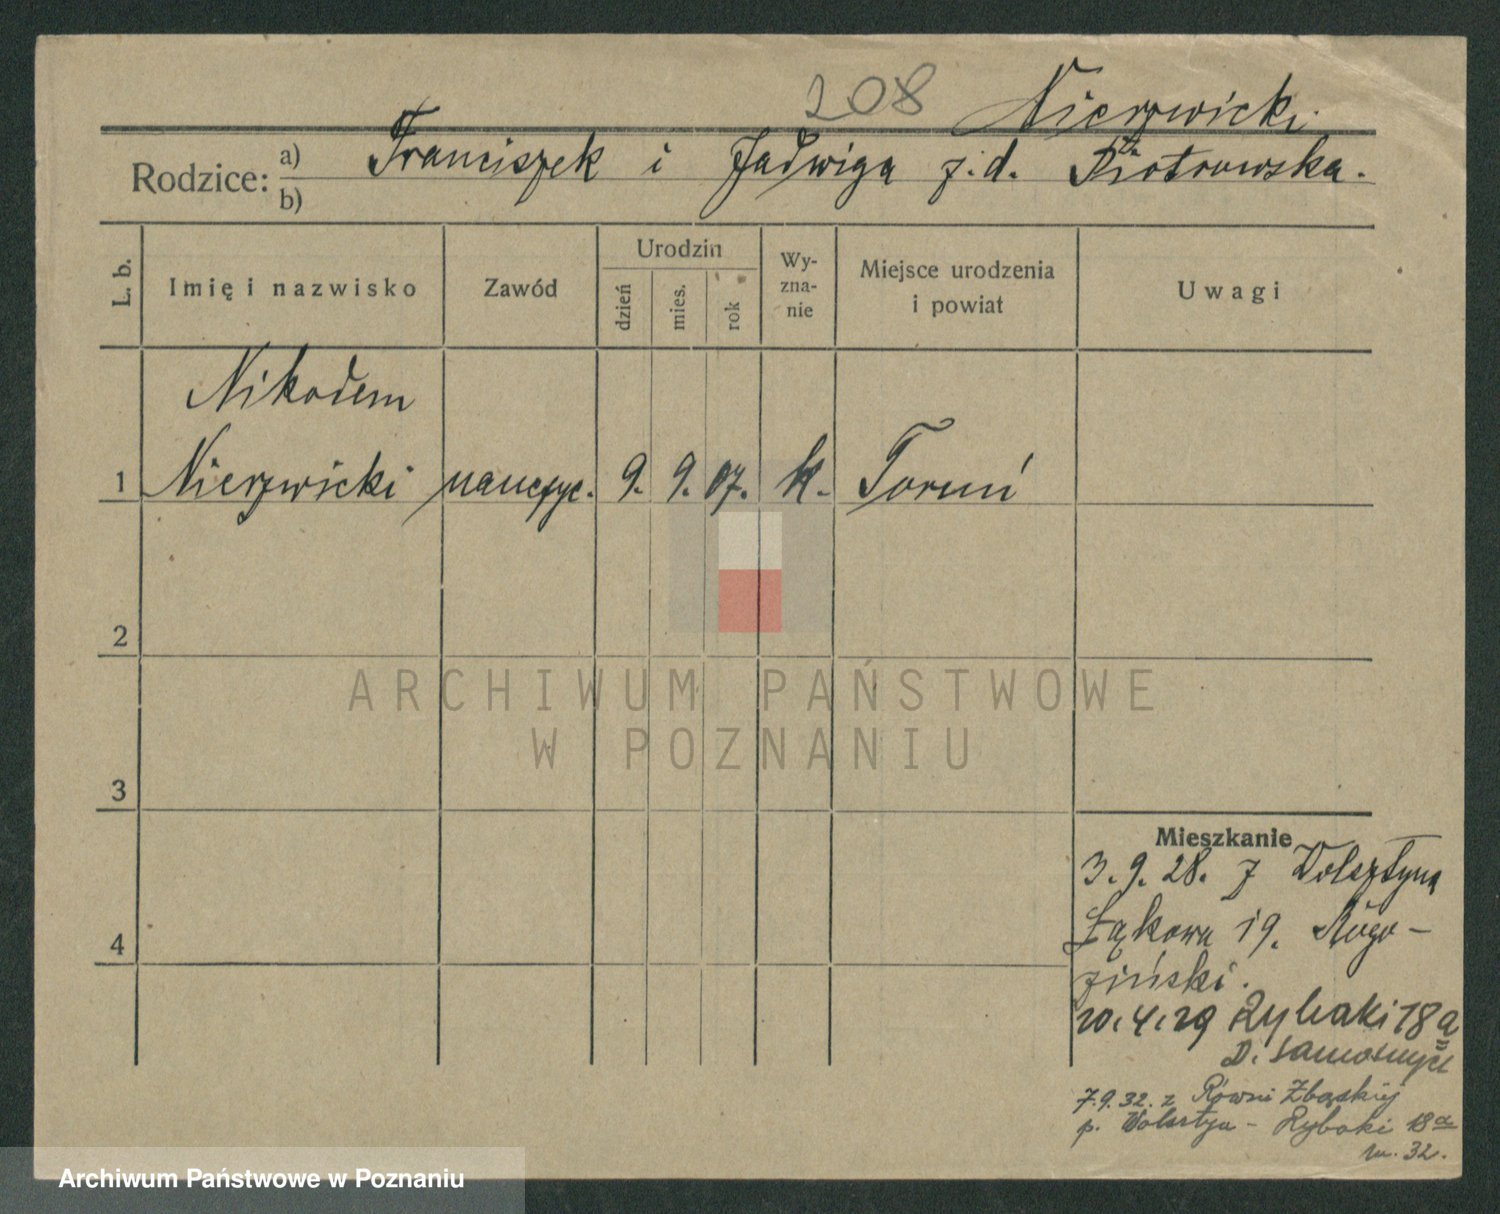 208 Nierzwicki.
Rodzice: a) Franciszek i Jadwiga z.d. Piotrowska.
b)
L. b. Imię i nazwisko Zawód Urodzin dzień mies. rok Wy-zna-nie Miejsce urodzenia i powiat Uwagi
Nikodem
1 Nierzwicki nauczyc. 9. 9. 07. k. Toruń
2
ARCHIWUM PAŃSTWOWE
W POZNANIU
3
Mieszkanie
3.9.28. z Wolsztyna
Łąkowa 19. Rogo-
4
ziński.
20.4.29 Rybaki 18a
D. Samotnych
7.9.32. z Równi Zbąskiej
p. Wolsztyn - Rybaki 18a
m. 32.
Archiwum Państwowe w Poznaniu